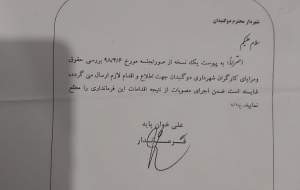 شهردار محترم دوگنبدان
سلام علیکم
احتراماً، به پیوست یکد نسخه از صورتجلسه مورخ ۹۸/۴/۶ بررسی حقوق
ومزایای کارگران شهرداری دوگنبدان جهت اطلاع و اقدام لازم ارسال می گردد،
شایسته است ضمن اجرای مصوبات از نتیجه اقدامات این فرمانداری را مطلع
نمایید.
علی خوان پایه
فرماندار